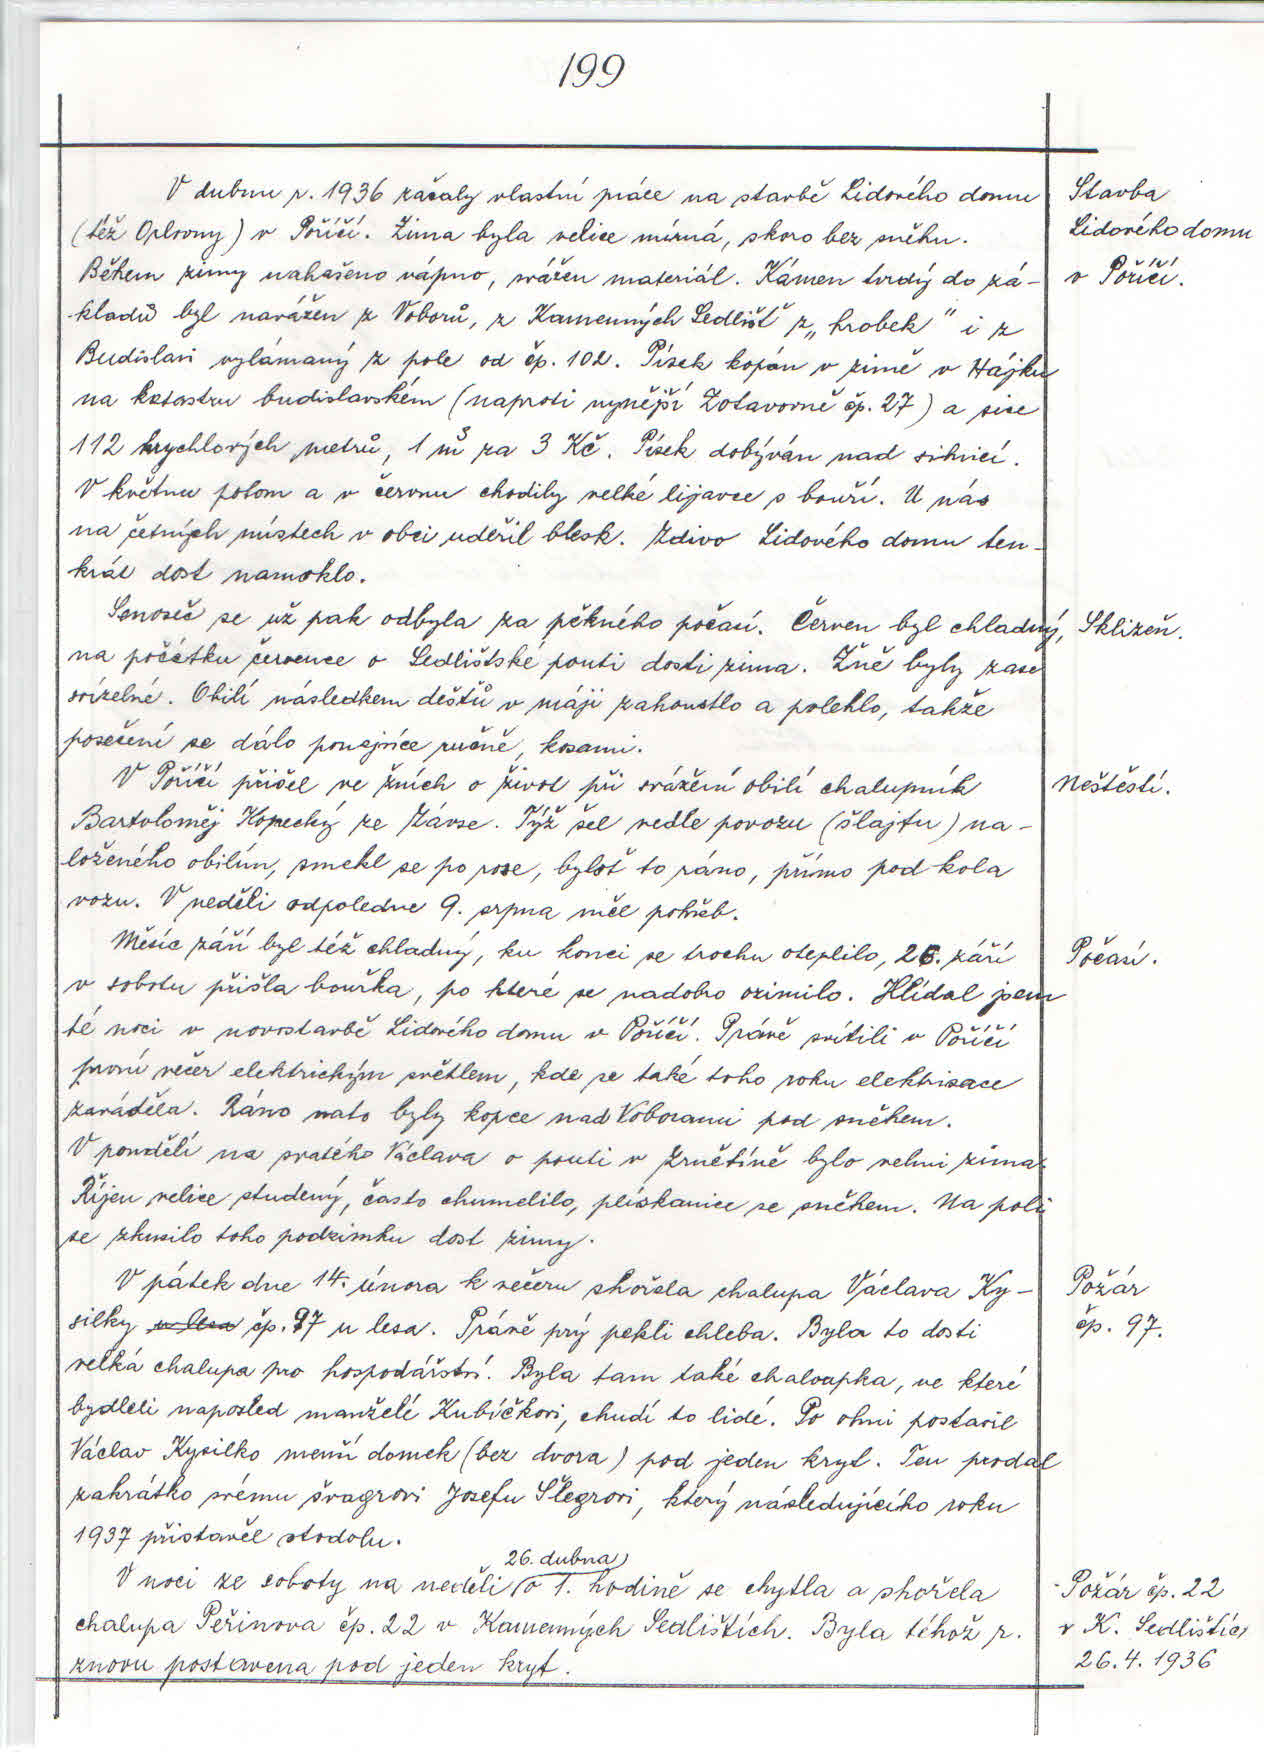 199
V dubnu r. 1936 začaly vlastní práce na stavbě Lidového domu
Stavba
(též Orlovny) v Poříčí. Zima byla velice mírná, skoro bez sněhu.
Lidového domu
Během zimy nahašeno vápno, svážen materiál. Kámen tvrdý do zá-
v Poříčí.
kladů byl navážen z Voborů, z Kamenných Sedlišť z „hrobek" i z
Budislavi vylámaný z pole od čp. 102. Písek kopán v zimě v Hájku
na katastru budislavském (naproti nynější Zotavovně čp. 27) a sice
112 krychlových metrů, 1 m³ za 3 Kč. Písek dobýván nad silnicí.
V květnu potom a v červnu chodily velké lijavce s bouří. U nás
na četných místech v obci udeřil blesk. Zdivo Lidového domu ten-
krát dost namoklo.
Senoseč se už pak odbyla za pěkného počasí. Červen byl chladný,
Sklizeň.
na počátku července o Sedlištské pouti dosti zima. Žně byly zase
svízelné. Obilí následkem dešťů v máji zahoustlo a polehlo, takže
posečení se dálo ponejvíce ručně, kosami.
V Poříčí přišel ve žních o život při svážení obilí chalupník
Neštěstí.
Bartoloměj Kopecký ze Závse. Týž šel vedle povozu (šlajfu) na-
loženého obilím, smekl se po rose, byloť to ráno, přímo pod kola
vozu. V neděli odpoledne 9. srpna měl pohřeb.
Měsíc září byl též chladný, ku konci se trochu oteplilo, 26. září
Počasí.
v sobotu přišla bouřka, po které se nadobro ozimilo. Hlídal jsem
té noci v novostavbě Lidového domu v Poříčí. Právě svítili v Poříčí
první večer elektrickým světlem, kde se také toho roku elektrisace
zaváděla. Ráno nato byly kopce nad Voborami pod sněhem.
V pondělí na svatého Václava o pouti v Zrnětíně bylo velmi zima.
Říjen velice studený, často chumelilo, plískanice se sněhem. Na poli
se zkusilo toho podzimku dost zimy.
V pátek dne 14. února k večeru shořela chalupa Václava Ky-
Požár
silky u lesa čp. 97 u lesa. Právě prý pekli chleba. Byla to dosti
čp. 97.
velká chalupa pro hospodářství. Byla tam také chaloupka, ve které
bydleli naposled manželé Kubíčkovi, chudí to lidé. Po ohni postavil
Václav Kysilko menší domek (bez dvora) pod jeden kryt. Ten prodal
zakrátko svému švagrovi Josefu Šlegrovi, který následujícího roku
1937 přistavěl stodolu.
26. dubna
V noci ze soboty na neděli o 1. hodině se chytla a shořela
Požár čp. 22
chalupa Peřinova čp. 22 v Kamenných Sedlištích. Byla téhož r.
v K. Sedlištíc
znovu postavena pod jeden kryt.
26.4.1936